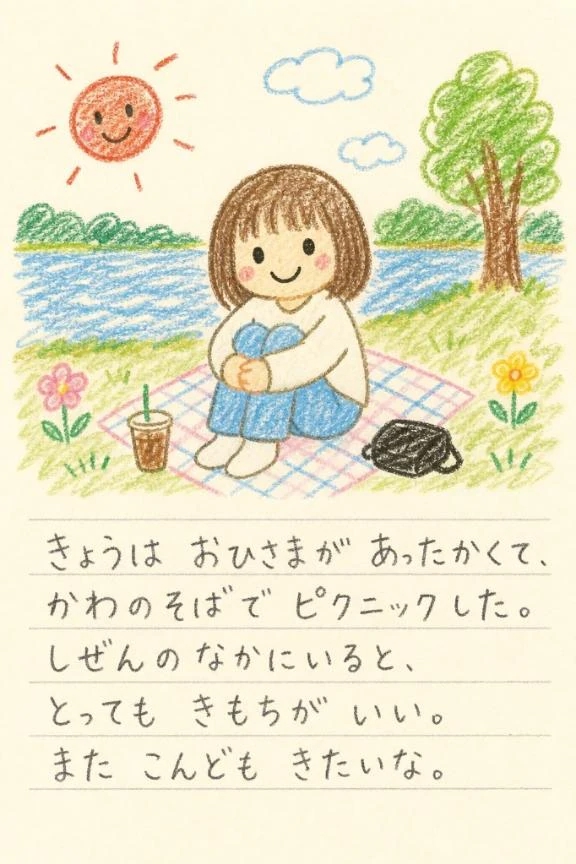 きょうは おひさまが あったかくて、
かわのそばで ピクニックした。
しぜんの なかにいると、
とっても きもちが いい。
また こんども きたいな。